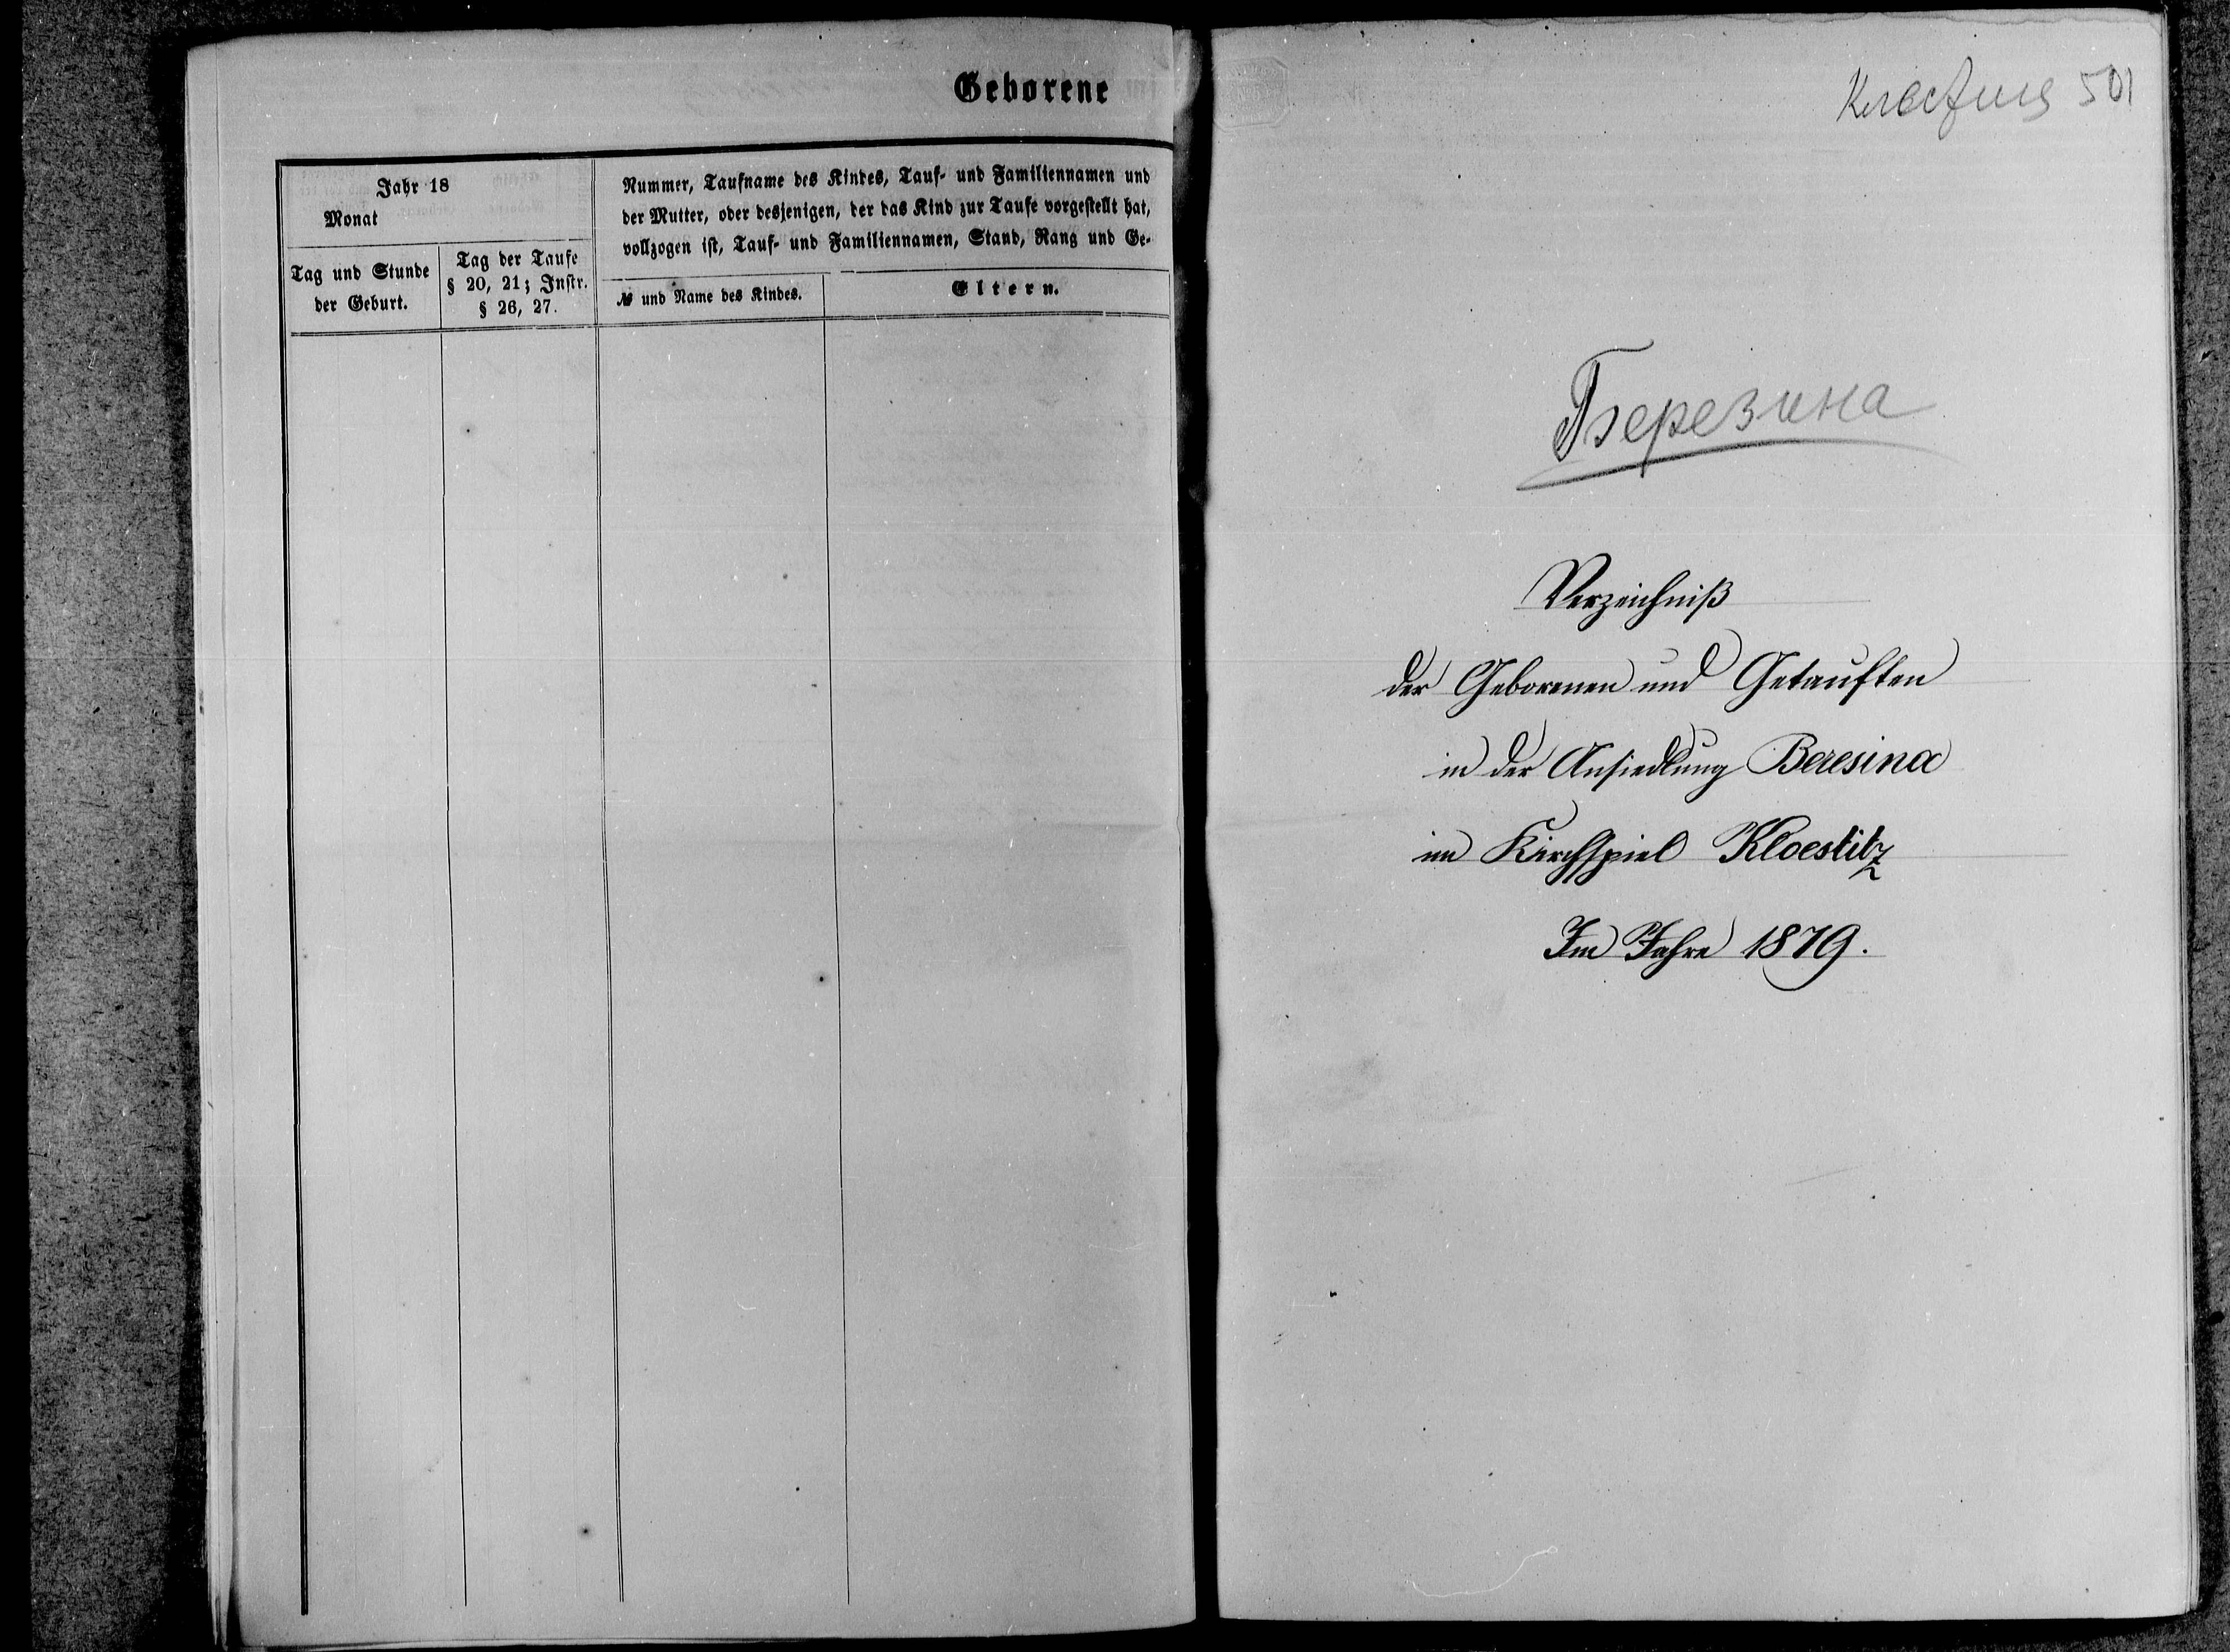 Geborene
Jahr 18
Monat
Tag und Stunde
der Geburt.
Tag der Taufe
§ 20, 21; Instr.
§ 26, 27.
Nummer, Taufname des Kindes, Tauf- und Familiennamen und
der Mutter, oder desjenigen, der das Kind zur Taufe vorgestellt hat,
vollzogen ist, Tauf- und Familiennamen, Stand, Rang und Ge-
№ und Name des Kindes.
Eltern.
501
Березина
Verzeichniß
der Geborenen und Getauften
in der Ansiedlung Beresina
im Kirchspiel Kloestitz
Im Jahre 1879.